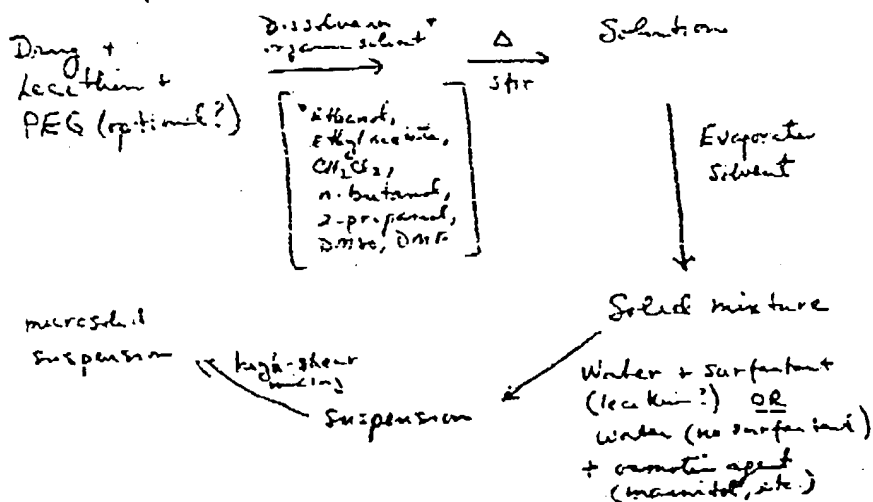 Drug +
Lecithin +
PEG (optional?)
Dissolve in
organic solvent *
* Ethanol,
Ethyl acetate,
CH2Cl2,
n-butanol,
2-propanol,
DMSO, DMF
Δ
stir
Solution
Evaporate
Solvent
Solid mixture
Water + surfactant
(lecithin?) OR
water (no surfactant)
+ osmotic agent
(mannitol, etc.)
suspension
high-shear
mixing
suspension